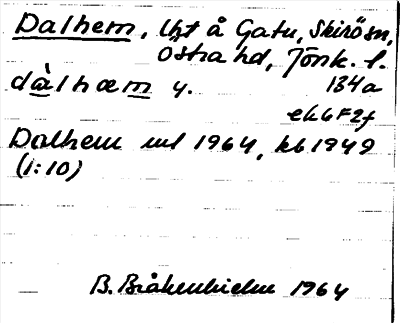 Dalhem, lht å Gatu, Skirö sn,
Östra hd, Jönk. l.
dàlhæm y. 134a
ek 6F2f
Dalhem ml 1964, kb 1949
(1:10)
B. Bråkenhielm 1964